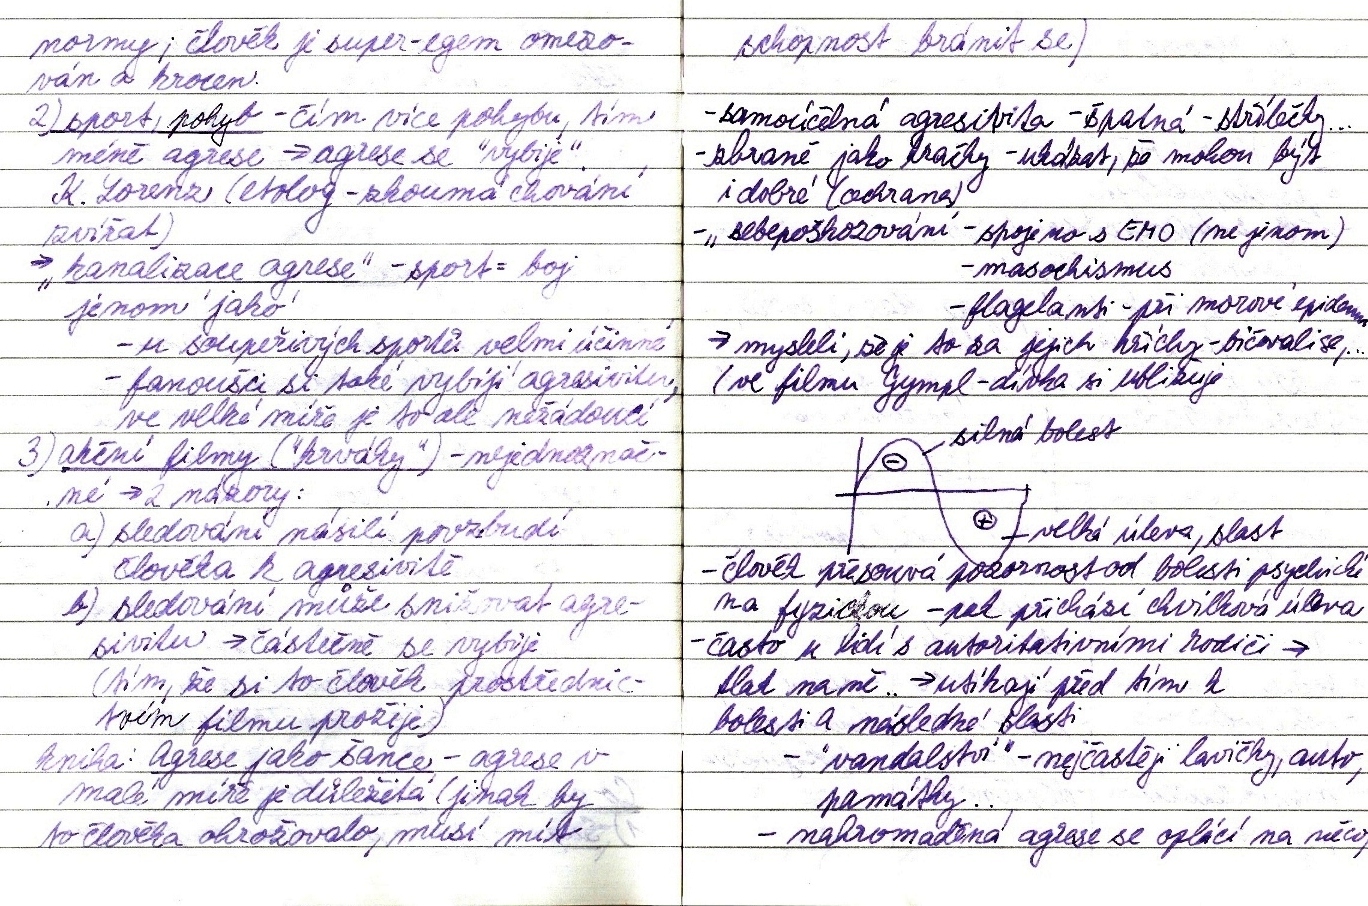 normy; člověk je super-egem omezo-
ván a krocen.
2) sport, pohyb - čím více pohybu, tím
méně agrese → agrese se "vybije"
K. Lorenz (etolog - zkoumá chování
zvířat)
→ „kanalizace agrese" - sport = boj
jenom jako
- u soupeřivých sportů velmi účinné
- fanoušci si také vybíjí agresivitu,
ve velké míře je to ale nežádoucí
3) akční filmy ("krváky") - nejednoznač-
né → 2 názory:
a) sledování násilí povzbudí
člověka k agresivitě
b) sledování může snižovat agre-
sivitu → částečně se vybije
(tím, že si to člověk prostřednic-
tvím filmu prožije)
kniha: Agrese jako šance - agrese v
malé míře je důležitá (jinak by
to člověka ohrožovalo, musí mít
schopnost bránit se)
- samoúčelná agresivita - špatná - střílečky...
- zbraně jako hračky - ukázat, že mohou být
i dobré (ochrana)
- „sebepoškozování - spojeno s EMO (ne jenom)
- masochismus
- flagelanti - při morové epidemii
→ mysleli, že je to za jejich hříchy - bičovali se,...
(ve filmu Gympl - dívka si ubližuje
silná bolest
-
+
velká úleva, slast
- člověk přesouvá pozornost od bolesti psychické
na fyzickou - pak přichází chvilková úleva
- často u lidí s autoritativními rodiči →
tlak na ně.. → utíkají před tím k
bolesti a následné slasti
- "vandalství" - nejčastěji lavičky, auto,
památky..
- nahromaděná agrese se oplácí na něco,